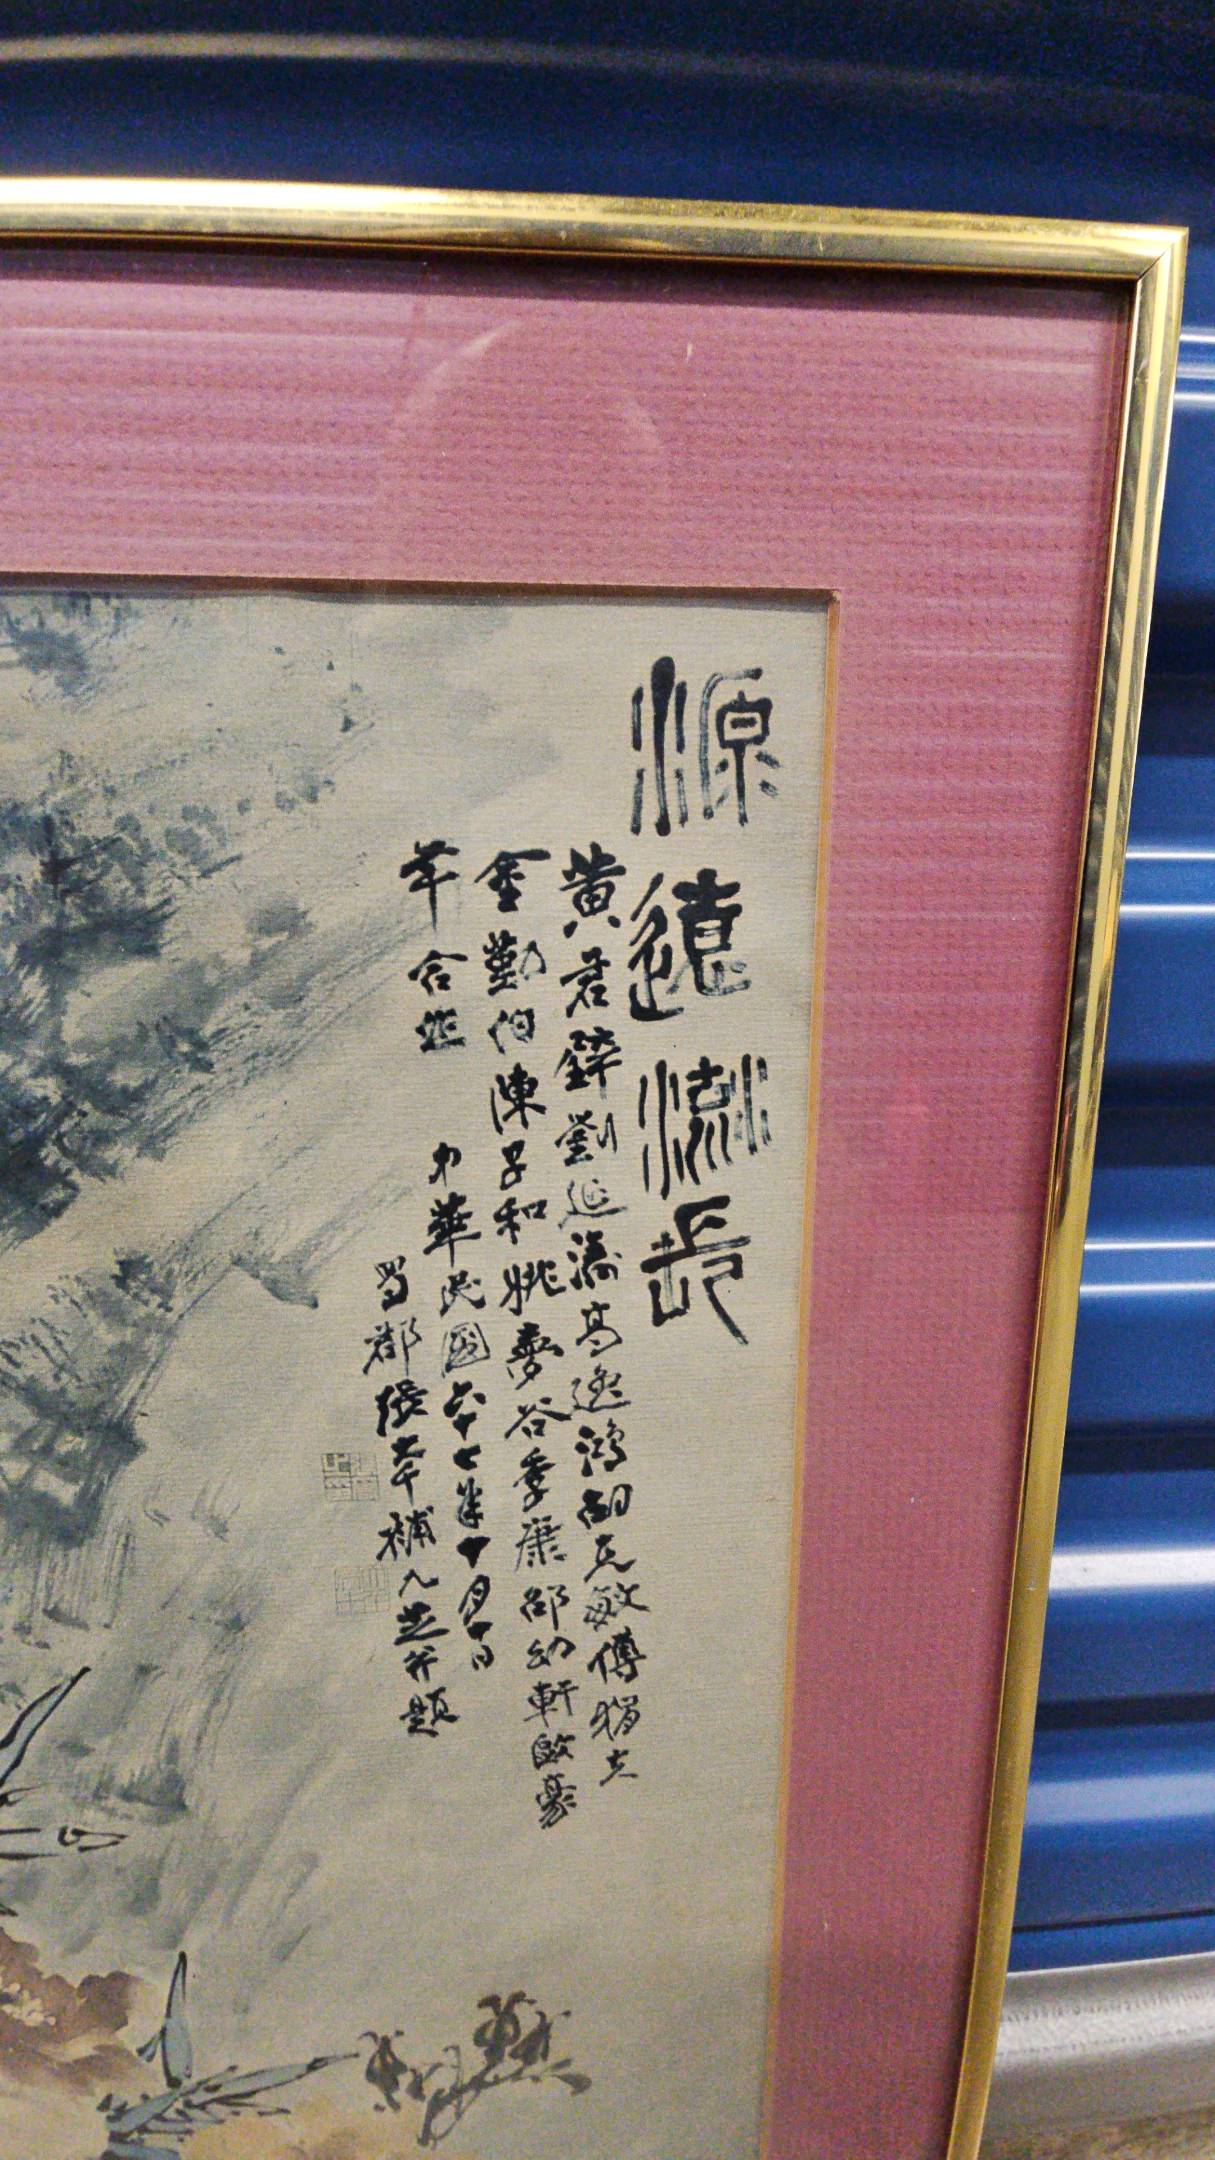 源遠流長
黃君璧劉延濤高逸鴻胡克敏傅狷夫
金勤伯陳子和姚夢谷季康邵幼軒歐豪
年合作
中華民國六十七年十月十日
蜀郡張大千補九芝并題